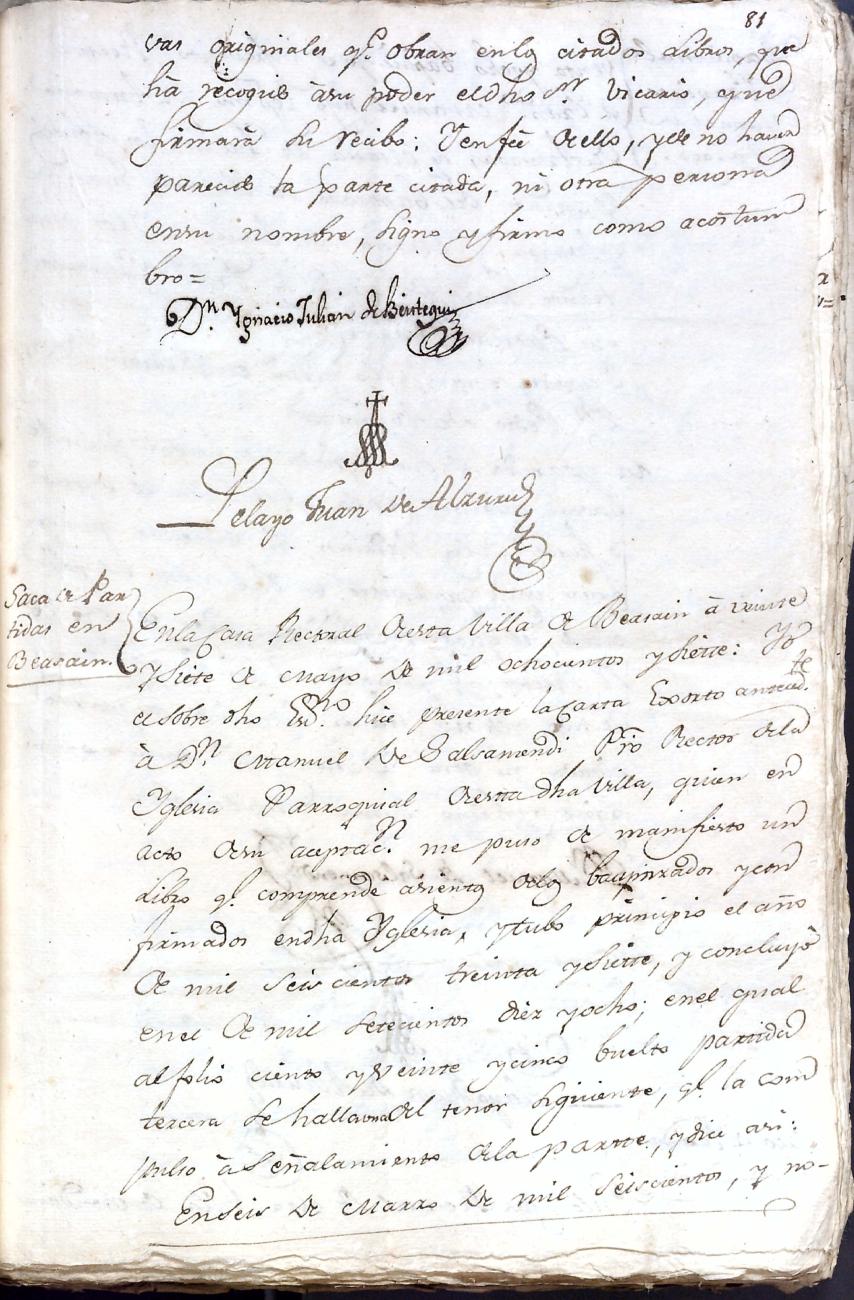 81
vas originales qe. obran enlos citados Libros, que
hà recogido àsu poder eldho sor Vicario, y que
firmarà su recibo; Yenfeè deello, yde no haver
parecido la parte citada, ni otra persona
ensu nombre, signo y firmo como acostum
bro=
Dn. Ygnacio Julian de Beistegui
Pelayo Juan de Alzuru
Saca de Par
tidas en
Beasain.
Enla Casa Rectoral deesta Villa de Beasain à veinte
y siete de Mayo de mil ochocientos y siette: Yo
el sobre dho Essno. hice presente la Carta Exorto anteced.te
à Dn. Manuel de Galsamendi Pro. Rector dela
Yglesia Parroquial deestta dha Villa, quien en
acto desu aceptacn. me puso de manifiesto un
Libro qe. comprende asientos delos bauptizados y con
firmados endha Yglesia, ytubo principio el año
de mil seis cientos treinta y siette, y concluyò
enel de mil setecientos diez yocho; enel qual
al folio ciento y veinte y cinco buelto partida
tercera se halla una del tenor siguiente, qe. la com
pulso à señalamiento dela partte, y dice asi:
En seis de Marzo de mil seiscientos, y no-